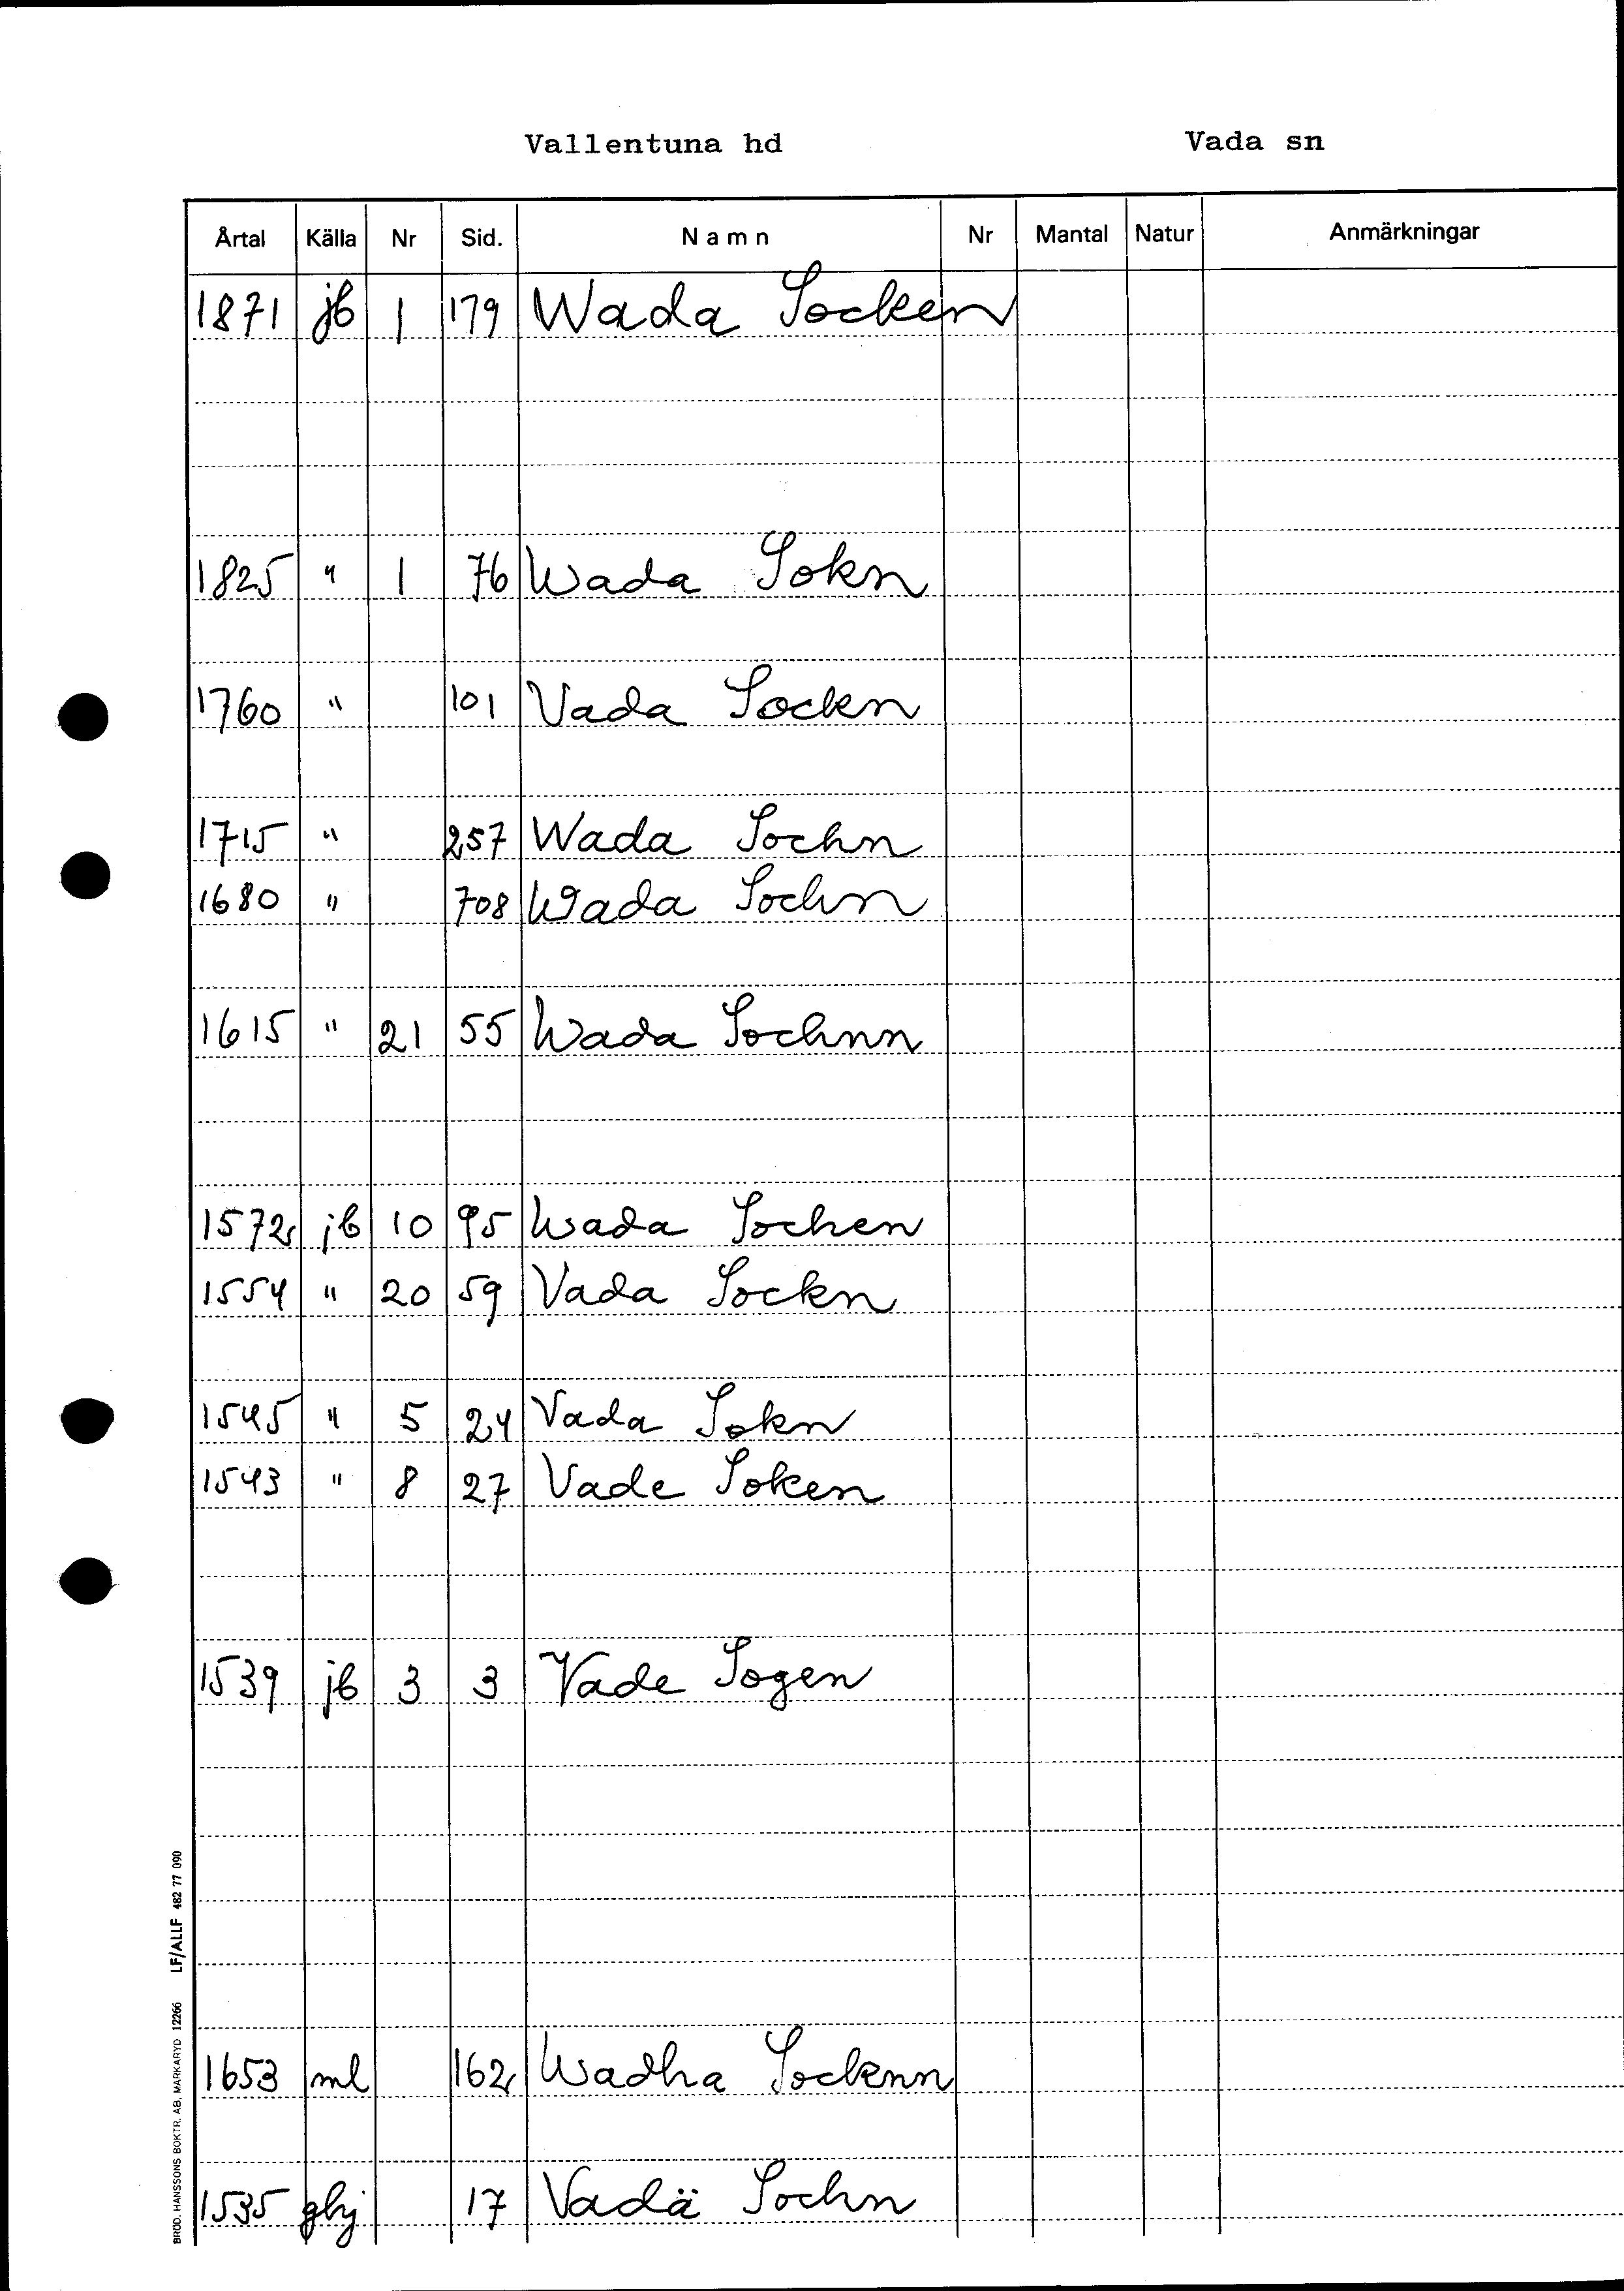 Vallentuna hd Vada sn
Årtal Källa Nr Sid. Namn Nr Mantal Natur Anmärkningar
1871 jb 1 179 Wada Socken
1825 " 1 76 Wada Sokn
1760 " 101 Vada Sockn
1715 " 257 Wada Sochn
1680 " 708 Wada Sochn
1615 " 21 55 Wada Sochnn
1572 jb 10 95 Wada Sochen
1554 " 20 59 Vada Sockn
1545 " 5 24 Vada Sokn
1543 " 8 27 Vade Soken
1539 jb 3 3 Vade Sogen
1653 ml 162 Wadha Socknn
1535 ghj 17 Vadä Sochn
BRÖD. HANSSONS BOKTR. AB, MARKARYD 12266 LF/ALLF 482 77 090